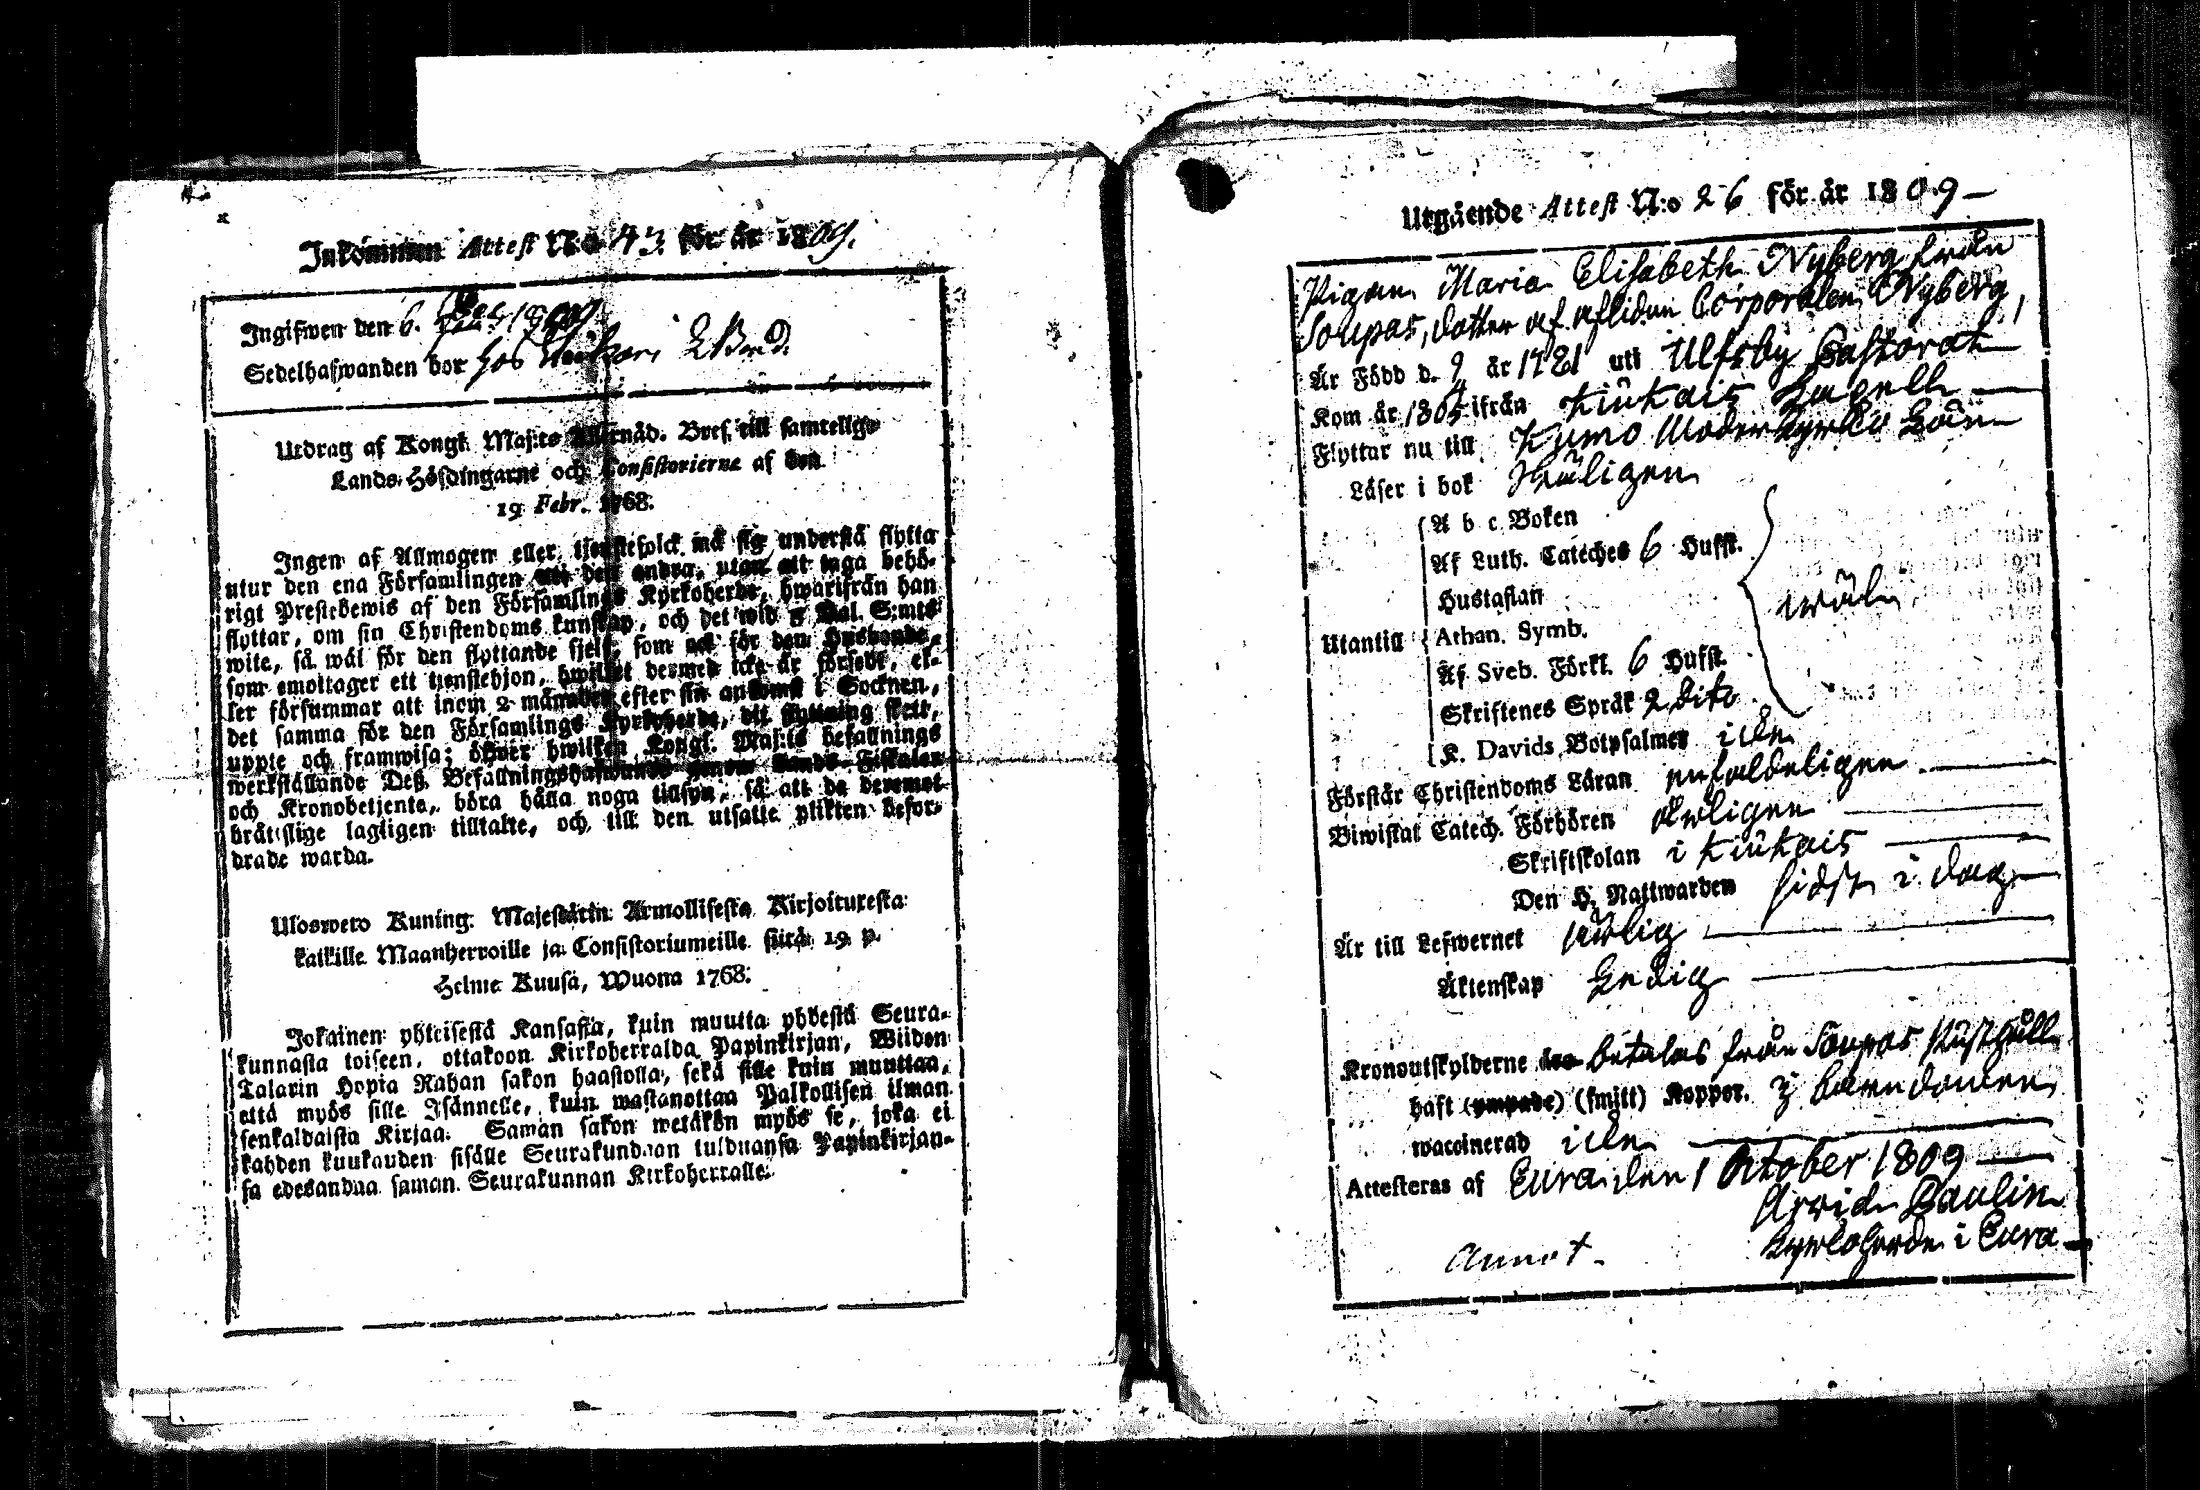 Inkommen Attest N:o 43. för år 1809.
Ingifwen den 6. 1809
Sedelhafwanden bor hos
Utdrag af Kongl. Maj:ts Allernåd. Bref, till samtelige
Lands-Höfdingarne och Consistorierne af den
19 Febr. 1768.
Ingen af Allmogen eller tjenstefolck må sig understå flytta
utur den ena Församlingen uti den andra, utan att taga behö-
rigt Prestebewis af den Församlings Kyrkoherde, hwarifrån han
flyttar, om sin Christendoms kunskap, och det wid 5 Dal. S:mts
wite, så wäl för den flyttande sjelf, som ock för den Husbonde,
som emottager ett tienstehjon, hwilket dermed icke är försedt, el-
ler försummar att inom 2 månader efter sin ankomst i Socknen,
det samma för den Församlings Kyrkoherde, dit flyttning skett,
uppte och framwisa; öfwer hwilken Kongl. Maj:ts befallnings
werkställande Deß Befallningshafwande genom Lands-Fiskaler
och Kronobetjente, böra hålla noga tillsyn, så att de deremot
bråtslige lagligen tilltalte, och till den utsatte plikten befor-
drade warda.
Uloswero Kuning. Majestätin Armollisesta Kirjoituresta
kaikille Maanherroille ja Consistoriumeille siitä 19 p.
Helme Kuusa, Wuona 1768.
Jokainen yhteisestä Kansasta, kuin muutta yhdestä Seura-
kunnasta toiseen, ottakoon Kirkoherralda Papinkirjan, Wiiden
Talarin Hopia Rahan sakon haastolla, sekä sille kuin muuttaa,
että myös sille Isännelle, kuin wastanottaa Palkollisen ilman
senkaldaista Kirjaa. Saman sakon wetäkön myös se, joka ei
kahden kuukauden sisälle Seurakundaan tulduansa Papinkirjan-
sa edesandaa saman Seurakunnan Kirkoherralle.
Utgående Attest N:o 26 för år 1809 –
Pigan Maria Elisabeth Nyberg från
Soupas, dotter af aflidne Corporalen Nyberg,
Är Född d. 9 år 1781 uti Ulfsby Pastorat
Kom år 1805 ifrån Kiukais Capell
Flyttar nu till Kumo Moderkyrko Sokn
Läser i bok
A b c Boken
Af Luth. Cateches 6 Hufst.
Hustaflan
Utantill Athan. Symb. wäl
Af Sveb. Förkl. 6 Hufst.
Skriftenes Språk 2 dito
K. Davids Botpsalmer icke
Förstår Christendoms Läran enfaldeligen
Biwistat Catech. Förhören årligen
Skriftskolan i Kiukais
Den H. Nattwarden sidst i dag
Är till Lefwernet ärlig
Äktenskap Ledig
Kronoutskylderne betalas från Soupas
haft (ympade) (smitt) Koppor. i barndomen
waccinerad icke
Attesteras af Eura den 1 October 1809
Arvid Paulin
Kyrkoherde i Eura
Annot.